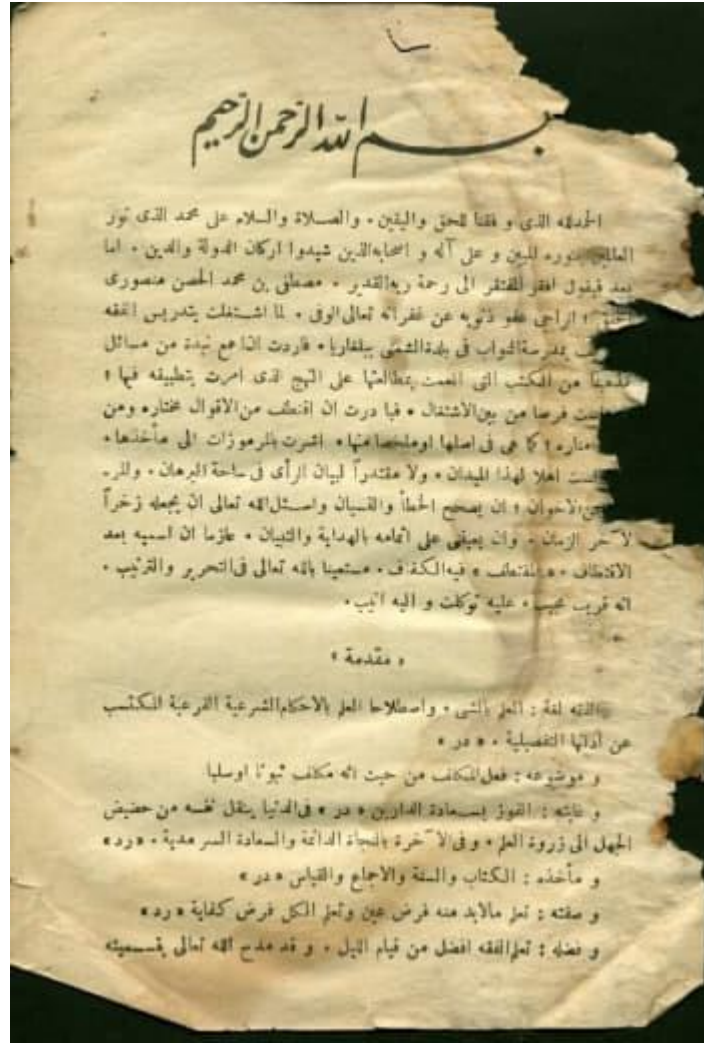 بسم الله الرحمن الرحيم
الحمدلله الذى و فقنا للحق واليقين ٠ والصلاة والسلام على محمد الذى نور
العالمين بنوره المبين و على آله و اصحابه الذين شيدوا اركان الدولة والدين ٠ اما
بعد فيقول افقر المفتقر الى رحمة ربه القدير ٠ مصطفى بن محمد الحسن منصورى
الراجى عفو ذنوبه عن غفرانه تعالى الوفى ٠ لما اشتغلت بتدريس الفقه
بمدرسة النواب فى بلدة الشمنى ببلغاريا ٠ فاردت ان اجمع نبذة من مسائل
من الكتب التى انعمت بمطالعتها على النهج الذى امرت بتطبيقه فيها ؛
فرصا من بين الاشتغال ٠ فبا درت ان اقتطف من الاقوال مختاره ومن
كما هى فى اصلها او ملخصا منها ٠ اشرت بالرموزات الى مأخذها ٠
اهلا لهذا الميدان ٠ ولا مقتدراً لبيان الرأى فى ساحة البرهان ٠
الاخوان ؛ ان يصحح الخطأ والنسيان واسئل الله تعالى ان يجعله زخراً
لآخر الزمان ٠ وان يعيننى على اتمامه بالهداية والتبيان ٠ عازما ان اسميه بعد
الاقتطاف ٠ «المقتطف» فيه الكفاف ٠ مستعينا بالله تعالى فى التحرير والترتيب ٠
انه قريب مجيب ٠ عليه توكلت و اليه انيب ٠
« مقدمة »
الفقه لغة : العلم بالشى ٠ واصطلاحا العلم بالاحكام الشرعية الفرعية المكتسب
عن ادلتها التفصيلية ٠ « در »
و موضوعه : فعل المكلف من حيث انه مكلف ثبوتا اوسلبا
و غايته : الفوز بسعادة الدارين « در » فى الدنيا ينقل نفسه من حضيض
الجهل الى زروة العلم ٠ وفى الآخرة بالنجاة الدائمة والسعادة السر مدية ٠ «رد»
و مأخذه : الكتاب والسنة والاجماع والقياس «در»
و صفته : تعلم مالابد منه فرض عين وتعلم الكل فرض كفاية «رد»
و فضله : تعلم الفقه افضل من قيام الليل ٠ و قد مدح الله تعالى بتسميته